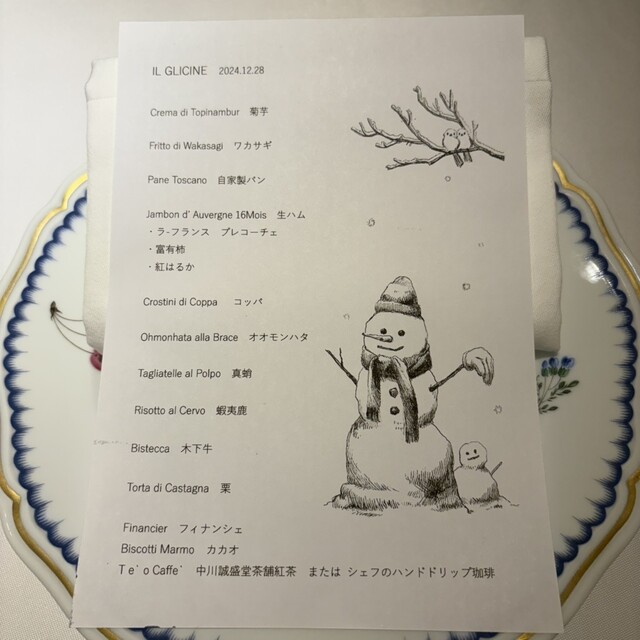 IL GLICINE 2024.12.28
Crema di Topinambur 菊芋
Fritto di Wakasagi ワカサギ
Pane Toscano 自家製パン
Jambon d' Auvergne 16Mois 生ハム
・ラ-フランス プレコーチェ
・富有柿
・紅はるか
Crostini di Coppa コッパ
Ohmonhata alla Brace オオモンハタ
Tagliatelle al Polpo 真蛸
Risotto al Cervo 蝦夷鹿
Bistecca 木下牛
Torta di Castagna 栗
Financier フィナンシェ
Biscotti Marmo カカオ
Te' o Caffe' 中川誠盛堂茶舗紅茶 または シェフのハンドドリップ珈琲